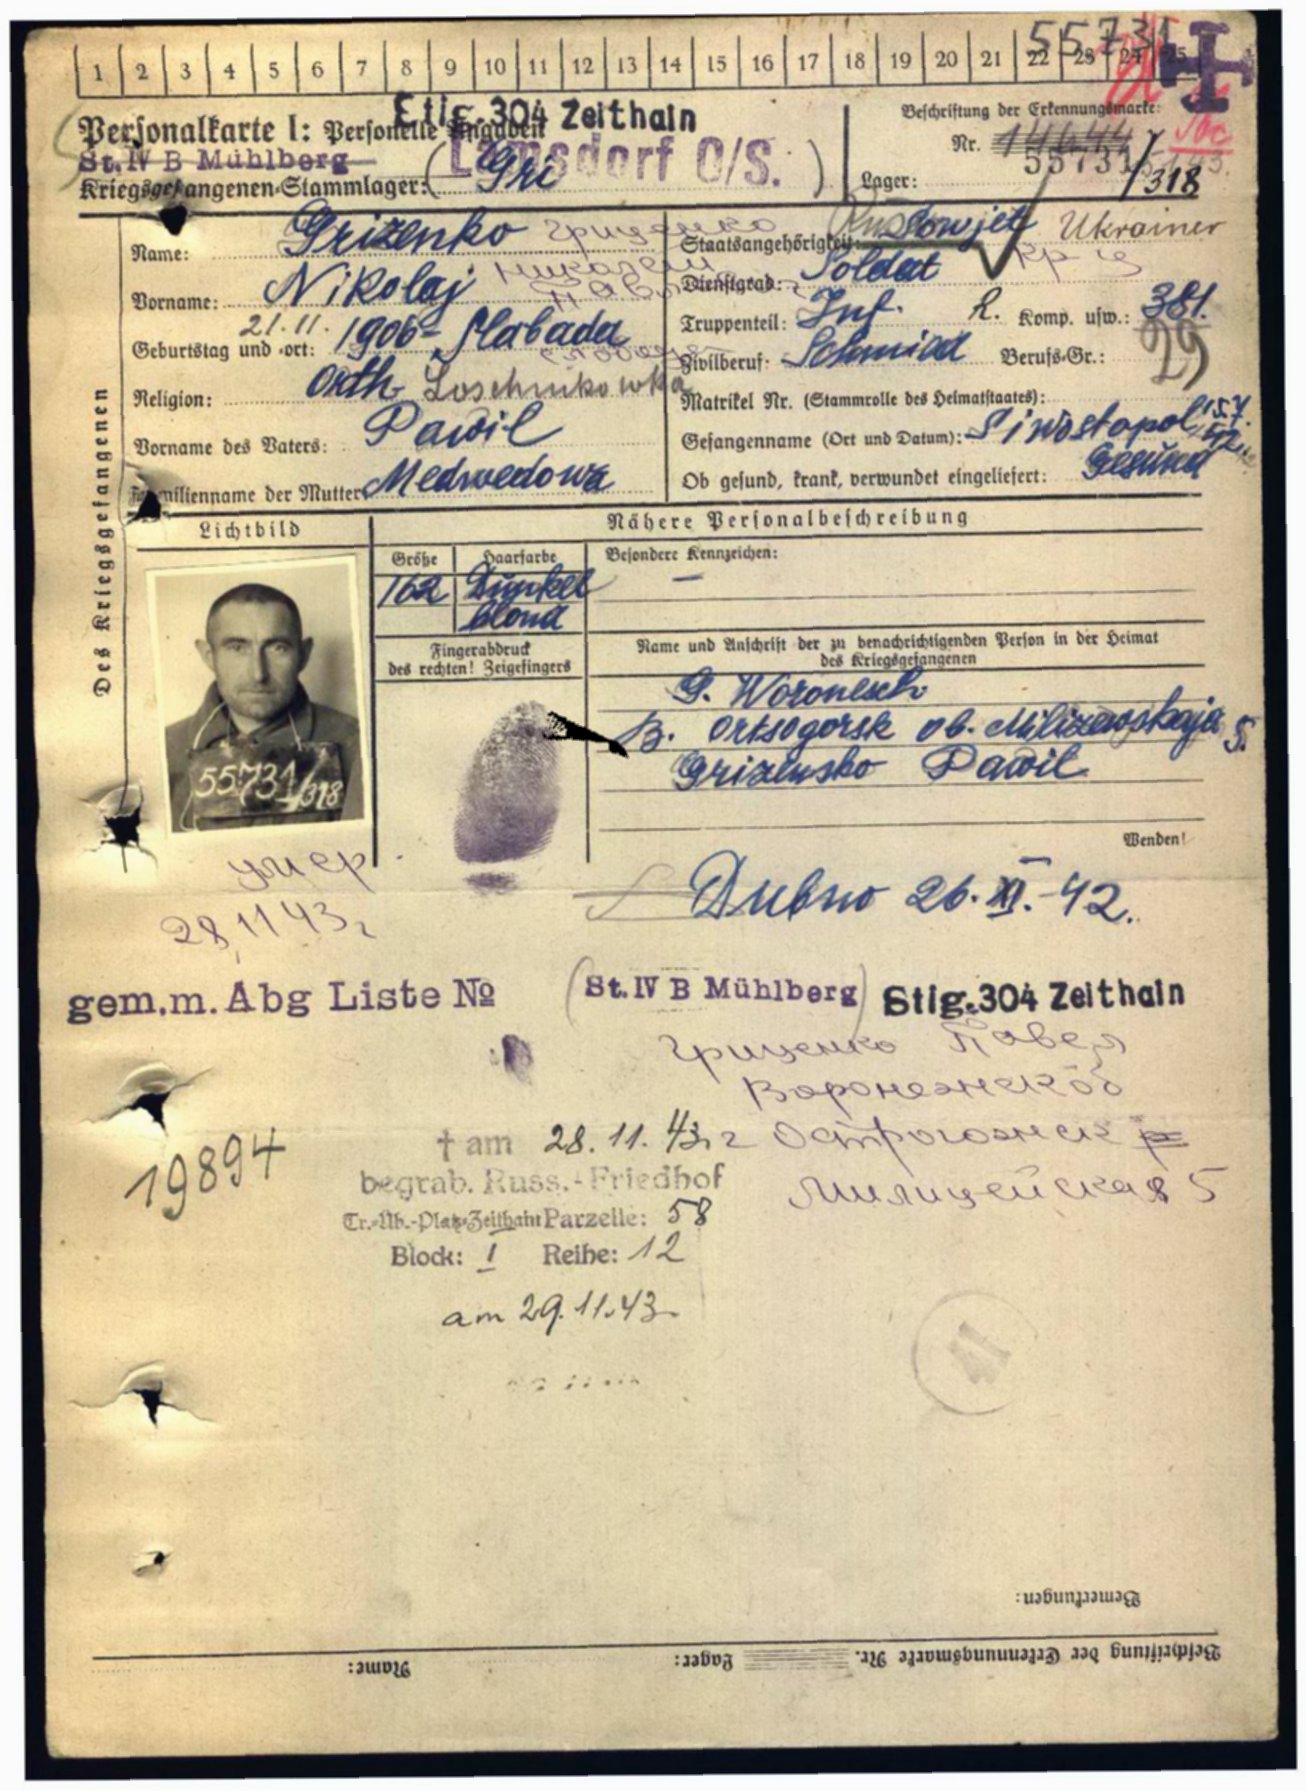 55731
1 2 3 4 5 6 7 8 9 10 11 12 13 14 15 16 17 18 19 20 21 22 23 24 25
Stlg. 304 Zeithain
Personalkarte I: Personelle Angaben
St. IV B Mühlberg
Kriegsgefangenen-Stammlager: Gri (Lamsdorf O/S.)
Beschriftung der Erkennungsmarke:
Nr. 55731
Lager: /318
Des Kriegsgefangenen
Name: Grizenko Гриценко
Vorname: Nikolaj Николай
Geburtstag und -ort: 21.11. 1906 - Slabada
Religion: Orth. Loschnikowka
Vorname des Vaters: Pawil
Familienname der Mutter: Medwedowa
Staatsangehörigkeit: Sowjet Ukrainer
Dienstgrad: Soldat Кр-ц
Truppenteil: Inf. R. Komp. usw.: 381.
Zivilberuf: Schmied Berufs-Gr.: 29
Matrikel Nr. (Stammrolle des Heimatstaates):
Gefangenname (Ort und Datum): Siwostopol 15.7. 42.
Ob gesund, krank, verwundet eingeliefert: Gesund
Lichtbild
Nähere Personalbeschreibung
Größe Haarfarbe Besondere Kennzeichen:
162 Dunkel blond —
55731/318
Fingerabdruck
des rechten! Zeigefingers
Name und Anschrift der zu benachrichtigenden Person in der Heimat
des Kriegsgefangenen
G. Woronesch
B. Ortsogorsk ob. Milizewskaja 5.
Grizensko Pawil
Wenden!
умер
28.11 43г
Dubno 26. XI. - 42.
gem.m. Abg Liste No
(St. IV B Mühlberg) Stlg. 304 Zeithain
Гриценко Павел
Воронежской
Острогожск р
Милицейская 5
19894
† am 28. 11. 43 г
begrab. Russ.-Friedhof
Tr.-Üb.-Platz-Zeithain Parzelle: 58
Block: I Reihe: 12
am 29.11.43
Bemerkungen:
Beschriftung der Erkennungsmarke Nr. Lager: Name: